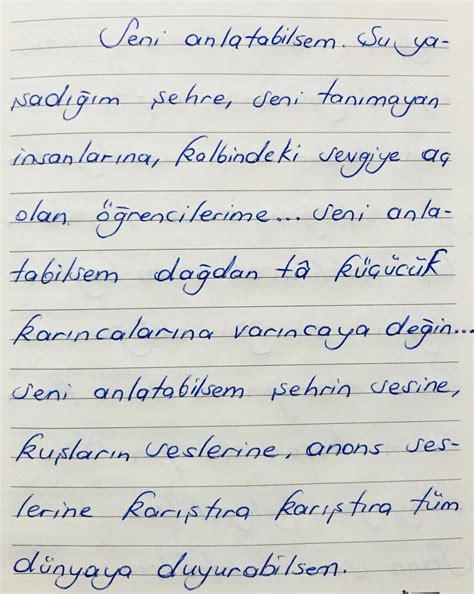 Seni anlatabilsem. Şu, ya-
şadığım şehre, seni tanımayan
insanlarına, kalbindeki sevgiye aç
olan öğrencilerime... seni anla-
tabilsem dağdan tâ küçücük
karıncalarına varıncaya değin...
seni anlatabilsem şehrin sesine,
kuşların seslerine, anons ses-
lerine karıştıra karıştıra tüm
dünyaya duyurabilsem.